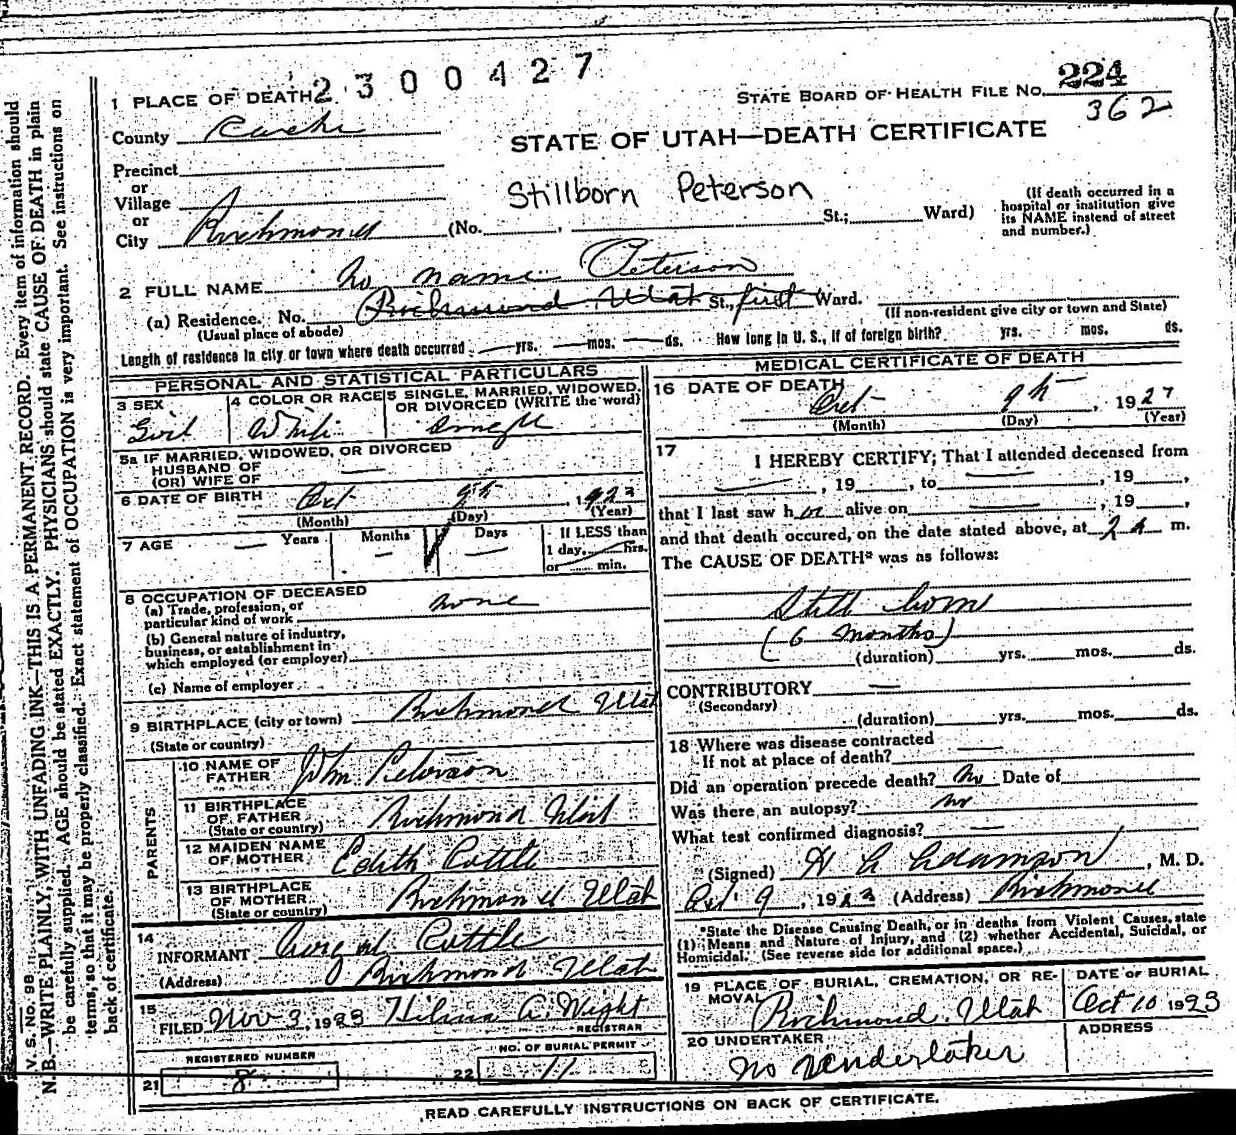 2300427
1 PLACE OF DEATH
STATE BOARD OF HEALTH FILE NO. 224
362
County Cache
STATE OF UTAH—DEATH CERTIFICATE
Precinct
or
Village
Stillborn Peterson
or
City Richmond (No. , St.; Ward)
(If death occurred in a hospital or institution give its NAME instead of street and number.)
2 FULL NAME No name Peterson
(a) Residence. No. Richmond Utah St., first Ward.
(Usual place of abode)
(If non-resident give city or town and State)
Length of residence in city or town where death occurred — yrs. — mos. — ds. How long in U. S., if of foreign birth? yrs. mos. ds.
PERSONAL AND STATISTICAL PARTICULARS
3 SEX 4 COLOR OR RACE 5 SINGLE, MARRIED, WIDOWED, OR DIVORCED (WRITE the word)
Girl White Single
5a IF MARRIED, WIDOWED, OR DIVORCED
HUSBAND OF
(OR) WIFE OF —
6 DATE OF BIRTH Oct 9th, 1923
(Month) (Day) (Year)
7 AGE — Years Months — Days — If LESS than 1 day, hrs. or min.
8 OCCUPATION OF DECEASED
(a) Trade, profession, or particular kind of work none
(b) General nature of industry, business, or establishment in which employed (or employer)
(c) Name of employer
9 BIRTHPLACE (city or town) Richmond Utah
(State or country)
PARENTS
10 NAME OF FATHER Wm Peterson
11 BIRTHPLACE OF FATHER Richmond Utah
(State or country)
12 MAIDEN NAME OF MOTHER Edith
13 BIRTHPLACE OF MOTHER Richmond Utah
(State or country)
14
INFORMANT
(Address) Richmond Utah
15
FILED Nov 3, 1923
REGISTRAR
REGISTERED NUMBER
21 8
NO. OF BURIAL PERMIT
22 11
MEDICAL CERTIFICATE OF DEATH
16 DATE OF DEATH
Oct 9th, 1927
(Month) (Day) (Year)
17
I HEREBY CERTIFY; That I attended deceased from
—, 19 , to —, 19 ,
that I last saw h er alive on —, 19 ,
and that death occured, on the date stated above, at 2 a m.
The CAUSE OF DEATH* was as follows:
Still born
(6 months)
(duration) yrs. mos. ds.
CONTRIBUTORY —
(Secondary)
(duration) yrs. mos. ds.
18 Where was disease contracted
If not at place of death? —
Did an operation precede death? No Date of
Was there an autopsy? no
What test confirmed diagnosis? —
(Signed) Adamson, M. D.
Oct 9, 1923 (Address) Richmond
*State the Disease Causing Death, or in deaths from Violent Causes, state
(1) Means and Nature of Injury, and (2) whether Accidental, Suicidal, or
Homicidal. (See reverse side for additional space.)
19 PLACE OF BURIAL, CREMATION, OR REMOVAL
Richmond Utah
DATE OF BURIAL
Oct 10 1923
20 UNDERTAKER
No Undertaker
ADDRESS
READ CAREFULLY INSTRUCTIONS ON BACK OF CERTIFICATE.
V. S. NO. 98
N. B.—WRITE PLAINLY, WITH UNFADING INK—THIS IS A PERMANENT RECORD. Every item of information should
be carefully supplied. AGE should be stated EXACTLY. PHYSICIANS should state CAUSE OF DEATH in plain
terms, so that it may be properly classified. Exact statement of OCCUPATION is very important. See instructions on
back of certificate.